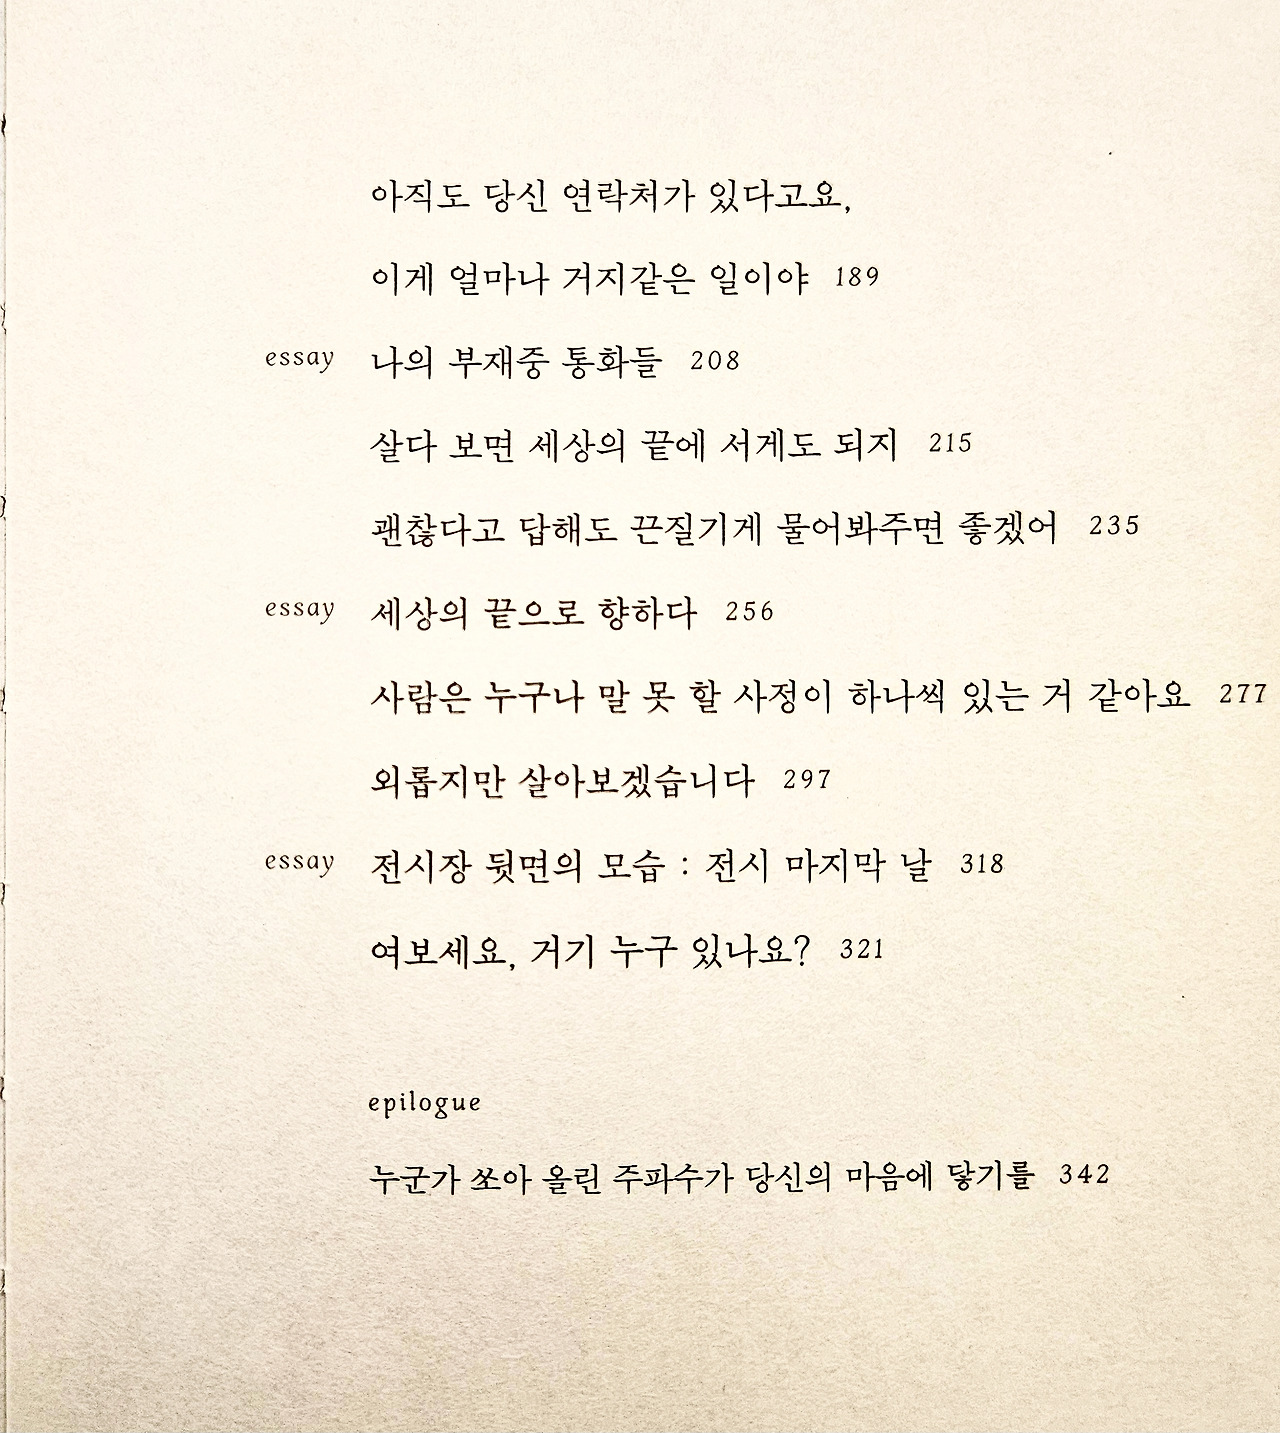 아직도 당신 연락처가 있다고요,
이게 얼마나 거지같은 일이야 189
essay 나의 부재중 통화들 208
살다 보면 세상의 끝에 서게도 되지 215
괜찮다고 답해도 끈질기게 물어봐주면 좋겠어 235
essay 세상의 끝으로 향하다 256
사람은 누구나 말 못 할 사정이 하나씩 있는 거 같아요 277
외롭지만 살아보겠습니다 297
essay 전시장 뒷면의 모습 : 전시 마지막 날 318
여보세요, 거기 누구 있나요? 321
epilogue
누군가 쏘아 올린 주파수가 당신의 마음에 닿기를 342